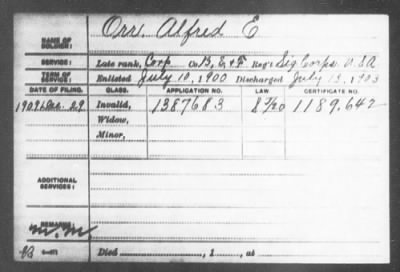 NAME OF SOLDIER: Orr, Alfred E
SERVICE: Late rank, Corp Co. B, E & F Reg't Sig Corps. U.S.A
TERM OF SERVICE: Enlisted July 10, 1900 Discharged July 13, 1903
DATE OF FILING. CLASS. APPLICATION NO. LAW CERTIFICATE NO.
1909 Dec. 29 Invalid, 1387683 1189.642
Widow,
Minor,
ADDITIONAL SERVICES:
REMARKS:
Died , 1 , at